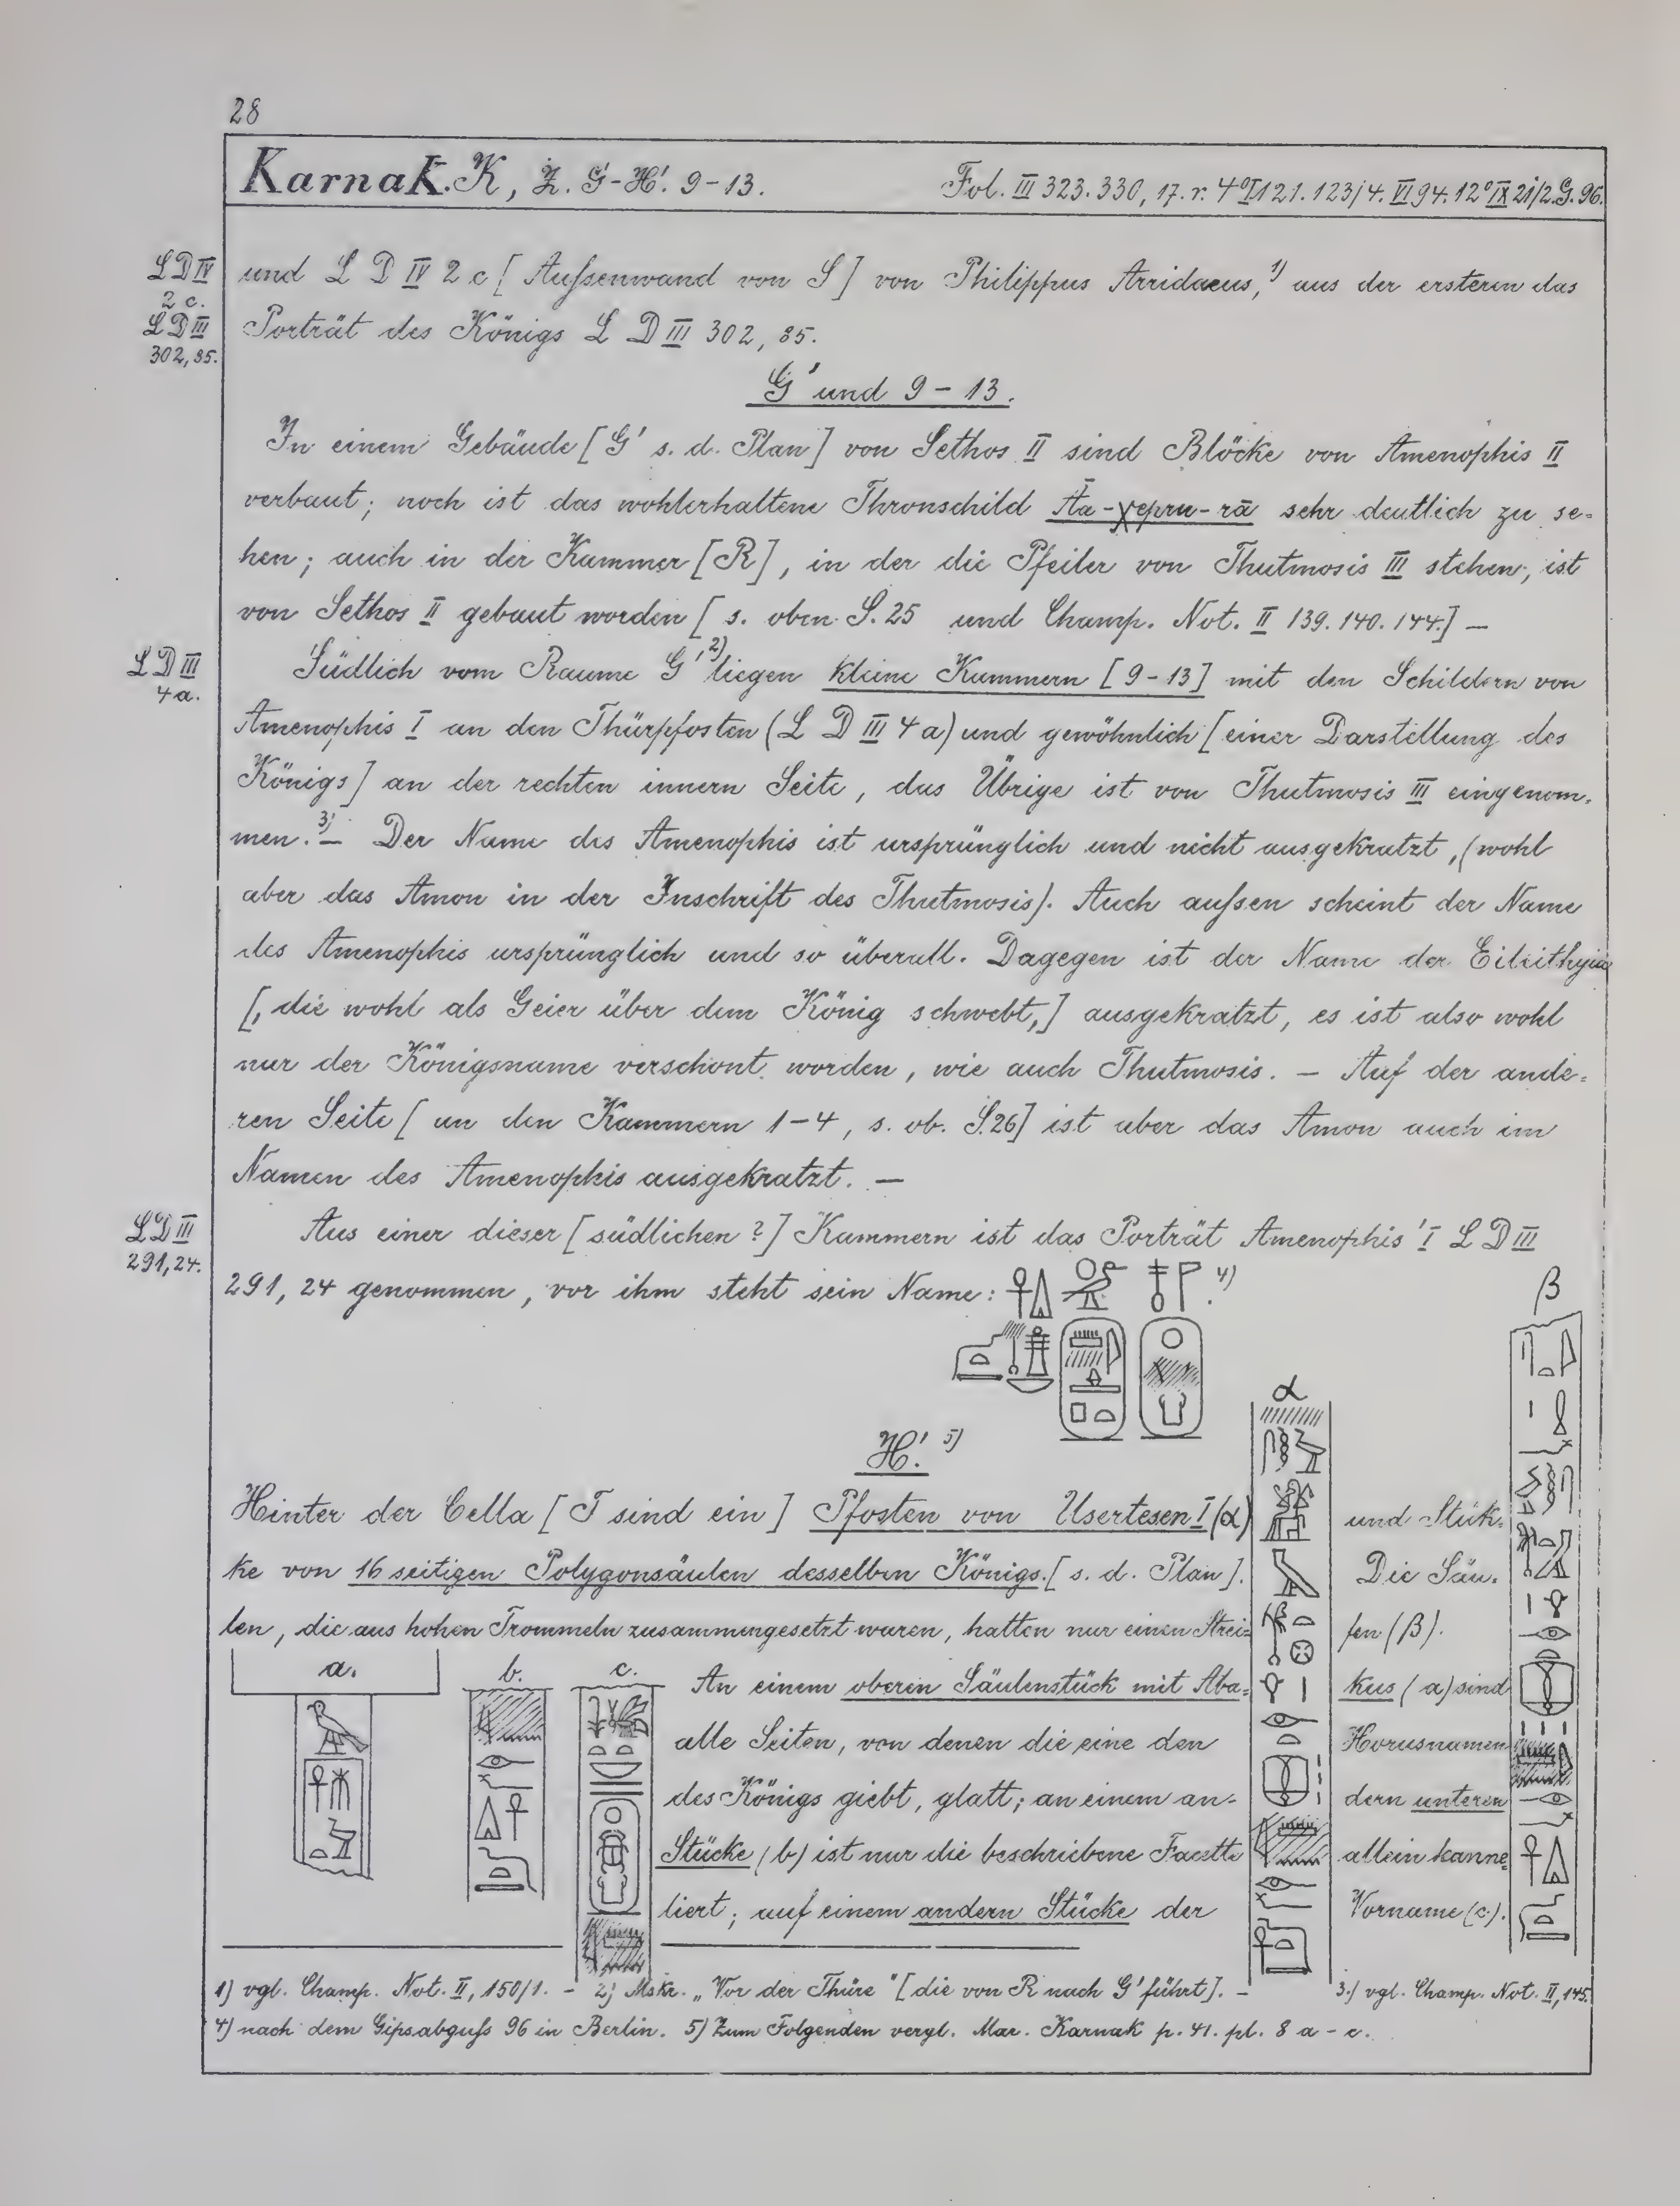 28
Karnak. K, Z. G'-H'. 9-13. Fol. III 323. 330, 17. r. 4° I 121. 123/4. VI 94. 12° IX 21/2. G. 96.
LD IV
2 c.
LD III
302, 85.
und L D IV 2 c [Außenwand von S] von Philippus Arridaeus,¹⁾ aus der ersteren das
Porträt des Königs L D III 302, 85.
G' und 9-13.
In einem Gebäude [G' s. d. Plan] von Sethos II sind Blöcke von Amenophis II
verbaut; noch ist das wohlerhaltene Thronschild Āa-χepru-rā sehr deutlich zu se-
hen; auch in der Kammer [R], in der die Pfeiler von Thutmosis III stehen, ist
von Sethos II gebaut worden [s. oben S. 25 und Champ. Not. II 139. 140. 144.] —
LD III
4 a.
Südlich vom Raume G'²⁾ liegen kleine Kammern [9-13] mit den Schildern von
Amenophis I an den Thürpfosten (L D III 4 a) und gewöhnlich [einer Darstellung des
Königs] an der rechten innern Seite, das Übrige ist von Thutmosis III eingenom-
men.³⁾ — Der Name des Amenophis ist ursprünglich und nicht ausgekratzt, (wohl
aber das Amon in der Inschrift des Thutmosis). Auch außen scheint der Name
des Amenophis ursprünglich und so überall. Dagegen ist der Name der Eileithyia
[, die wohl als Geier über dem König schwebt,] ausgekratzt, es ist also wohl
nur der Königsname verschont worden, wie auch Thutmosis. — Auf der ande-
ren Seite [an den Kammern 1-4, s. ob. S. 26] ist aber das Amon auch im
Namen des Amenophis ausgekratzt. —
LD III
291, 24.
Aus einer dieser [südlichen?] Kammern ist das Porträt Amenophis' I L D III
291, 24 genommen, vor ihm steht sein Name: ⁴⁾
H'.⁵⁾
α
β
Hinter der Cella [T sind ein] Pfosten von Usertesen I (α) und Stük-
ke von 16 seitigen Polygonsäulen desselben Königs. [s. d. Plan]. Die Säu-
len, die aus hohen Trommeln zusammengesetzt waren, hatten nur einen Strei-fen (β).
a. b. c.
An einem oberen Säulenstück mit Aba-kus (a) sind
alle Seiten, von denen die eine den Horusnamen
des Königs giebt, glatt; an einem an-dern unteren
Stücke (b) ist nur die beschriebene Facette allein kanne-
liert; auf einem andern Stücke der Vorname (c.).
1) vgl. Champ. Not. II, 150/1. — 2) Mskr. „Vor der Thüre" [die von R nach G' führt]. — 3.) vgl. Champ. Not. II, 145.
4) nach dem Gipsabguß 96 in Berlin. 5) Zum Folgenden vergl. Mar. Karnak p. 41. pl. 8 a-c.